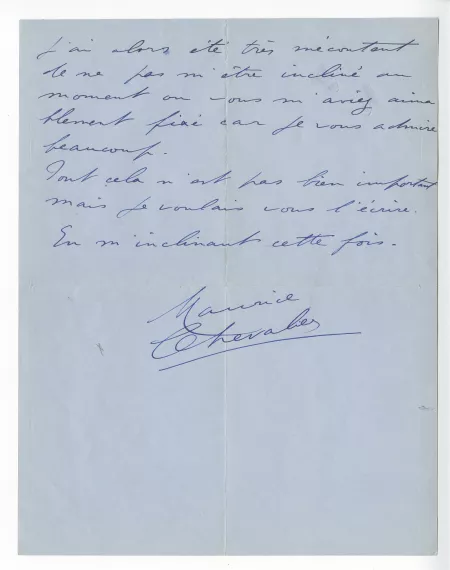 J'ai alors été très mécontent
de ne pas m'être incliné au
moment ou vous m'aviez aima
blement fixé car je vous admire
beaucoup.
Tout cela n'est pas bien important
mais je voulais vous l'écrire.
En m'inclinant cette fois.
Maurice
Chevalier